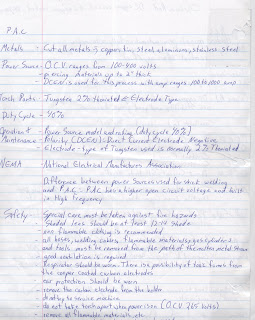 P.A.C
Metals - Cut all metals is copper, tin, steel, aluminum, stainless steel
Power Source - O.C.V. ranges from 100-400 volts
- piercing materials up to 2" thick
- DCEN is used for this process with amp ranges 100 to 1000 amp
Torch Parts: Tungsten 2% thoriated Electrode Type
Duty Cycle - 40%
Operation & - Power Source model and rating (duty cycle 40%)
Maintenance - Polarity (DCEN) - Direct Current Electrode Negative
- Electrode - type of Tungsten used is normally 2% Thoriated
NEMA - National Electrical Manufactures Association
Difference between power Sources used for stick welding
and P.A.C = P.A.C has a higher open circuit voltage and built
in High frequency
Safety - Special care must be taken against fire hazards
- Shaded lens should be at least 12-14 shade
- non flammable clothing is recommended
- all hoses, welding cables, flammable materials, gas cylinders
and tools must be removed from the path of the molten metal
- good ventilation is required
- Respirator should be worn. There is a possibility of toxic fumes from
the copper coated carbon electrodes
- ear protection should be worn
- remove the carbon electrode from the holder
- do not try to service machine
- do not touch torch parts when power is on (O.C.V.
- remove all flammable materials etc.